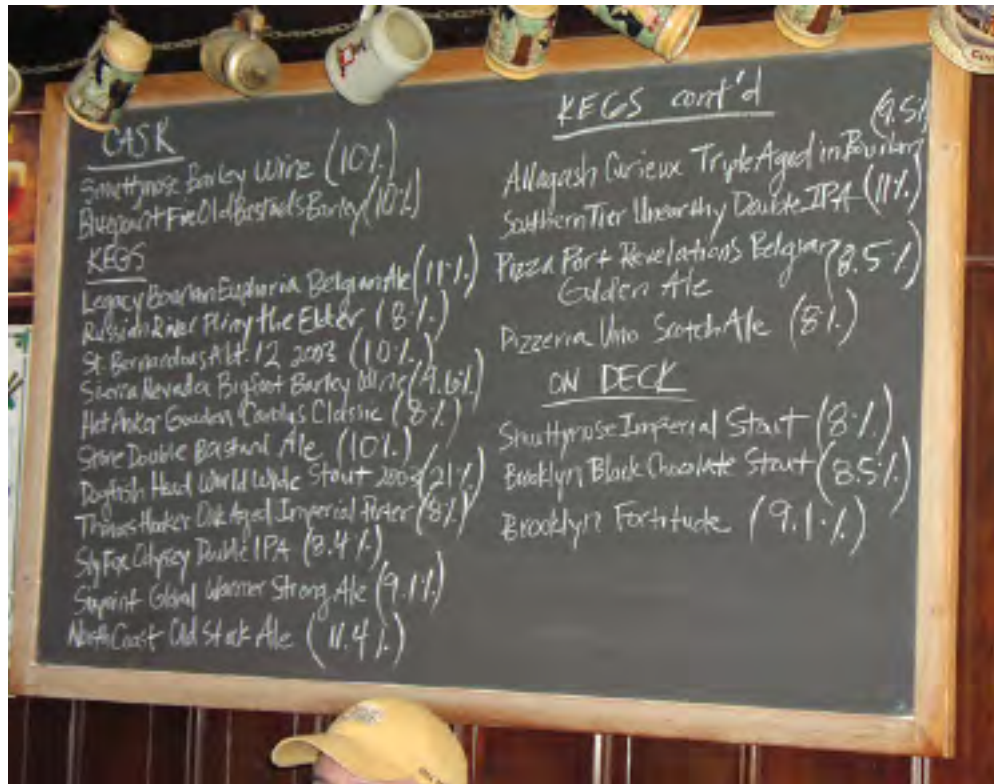 CASK
Smuttynose Barley Wine (10%)
Bluepoint Five Old Bastards Barley (10%)
KEGS
Legacy Bourbon Euphoria Belgian Ale (11%)
Russian River Pliny the Elder (8%)
St. Bernardous Abt. 12 2003 (10%)
Sierra Nevada Bigfoot Barley Wine (9.6%)
Het Anker Gouden Carolus Classic (8%)
Stone Double Bastard Ale (10%)
Dogfish Head World Wide Stout 2003 (21%)
Thomas Hooker Oak Aged Imperial Porter (8%)
Sly Fox Odyssey Double IPA (8.4%)
Sixpoint Global Warmer Strong Ale (9.1%)
North Coast Old Stock Ale (11.4%)
KEGS cont'd
(9.5%)
Allagash Curieux Triple Aged in Bourbon
Southern Tier Unearthy Double IPA (11%)
Pizza Port Revelations Belgian (8.5%)
Golden Ale
Pizzeria Uno Scotch Ale (8%)
ON DECK
Smuttynose Imperial Stout (8%)
Brooklyn Black Chocolate Stout (8.5%)
Brooklyn Fortitude (9.1%)